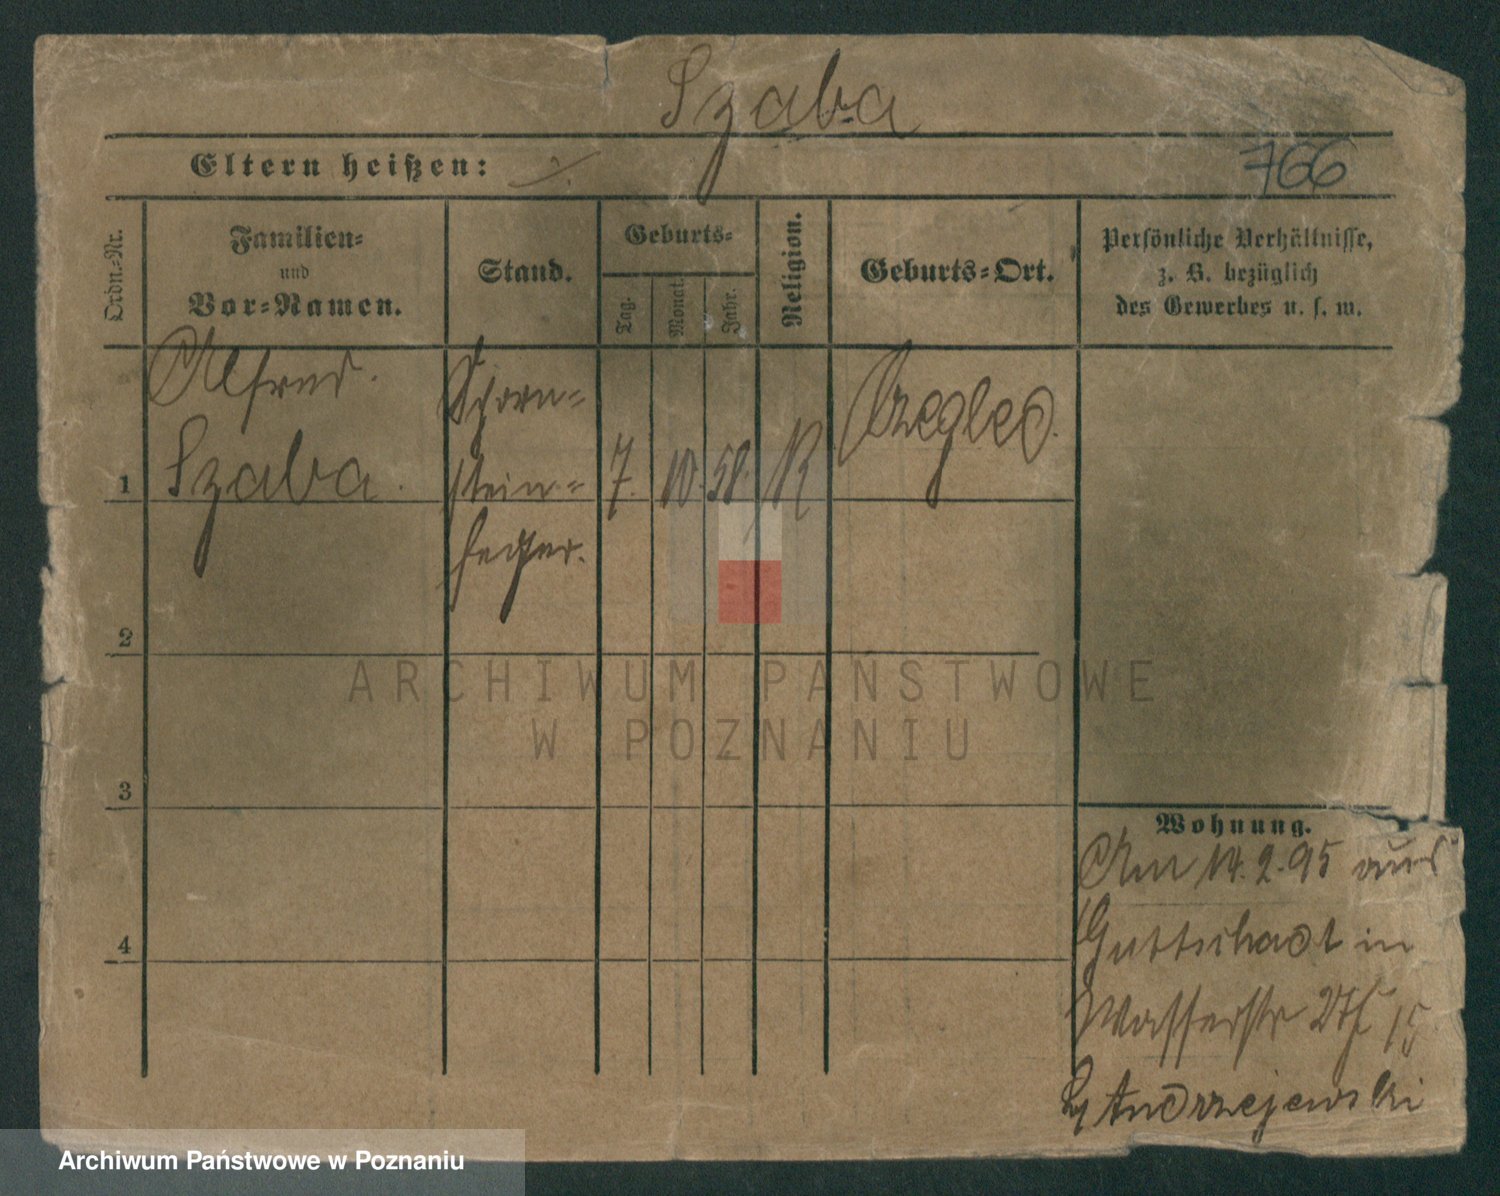 Szaba
Eltern heißen:
766
Ordn.-Nr.
Familien-
und
Vor-Namen.
Stand.
Geburts-
Tag.
Monat.
Jahr.
Religion.
Geburts-Ort.
Persönliche Verhältnisse,
z. B. bezüglich
des Gewerbes u. s. w.
Alfred
Szaba.
Schorn-
stein-
feger.
1
7.
10.
58.
K
Czegled.
2
3
4
Wohnung.
Am 14.2.95 aus
Guttstadt in
Wasserstr 15
Andrzejewski
ARCHIWUM PAŃSTWOWE
W POZNANIU
Archiwum Państwowe w Poznaniu